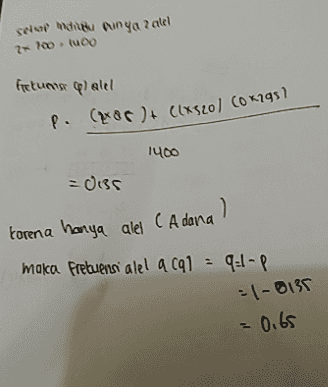 setiap individu punya 2 alel
2x 700 = 1400
frekuensi (p) alel
p = (2x85) + (1x520) (0x295)
1400
= 0,35
karena hanya alel (A dan a)
maka frekuensi alel a (q) = q=1-p
= 1-0,35
= 0.65